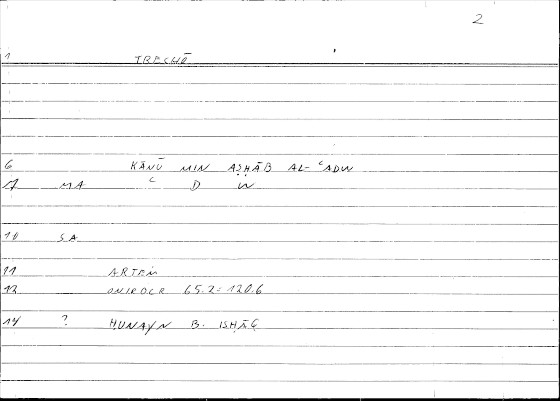 2
1 TRECHŌ
6 KĀNŪ MIN AṢḤĀB AL-ʿADW
7 MA ʿ D W
10 SA
11 ARTEM
12 ONIROCR 65.2=120.6
14 ? ḤUNAYN B. ISḤĀQ